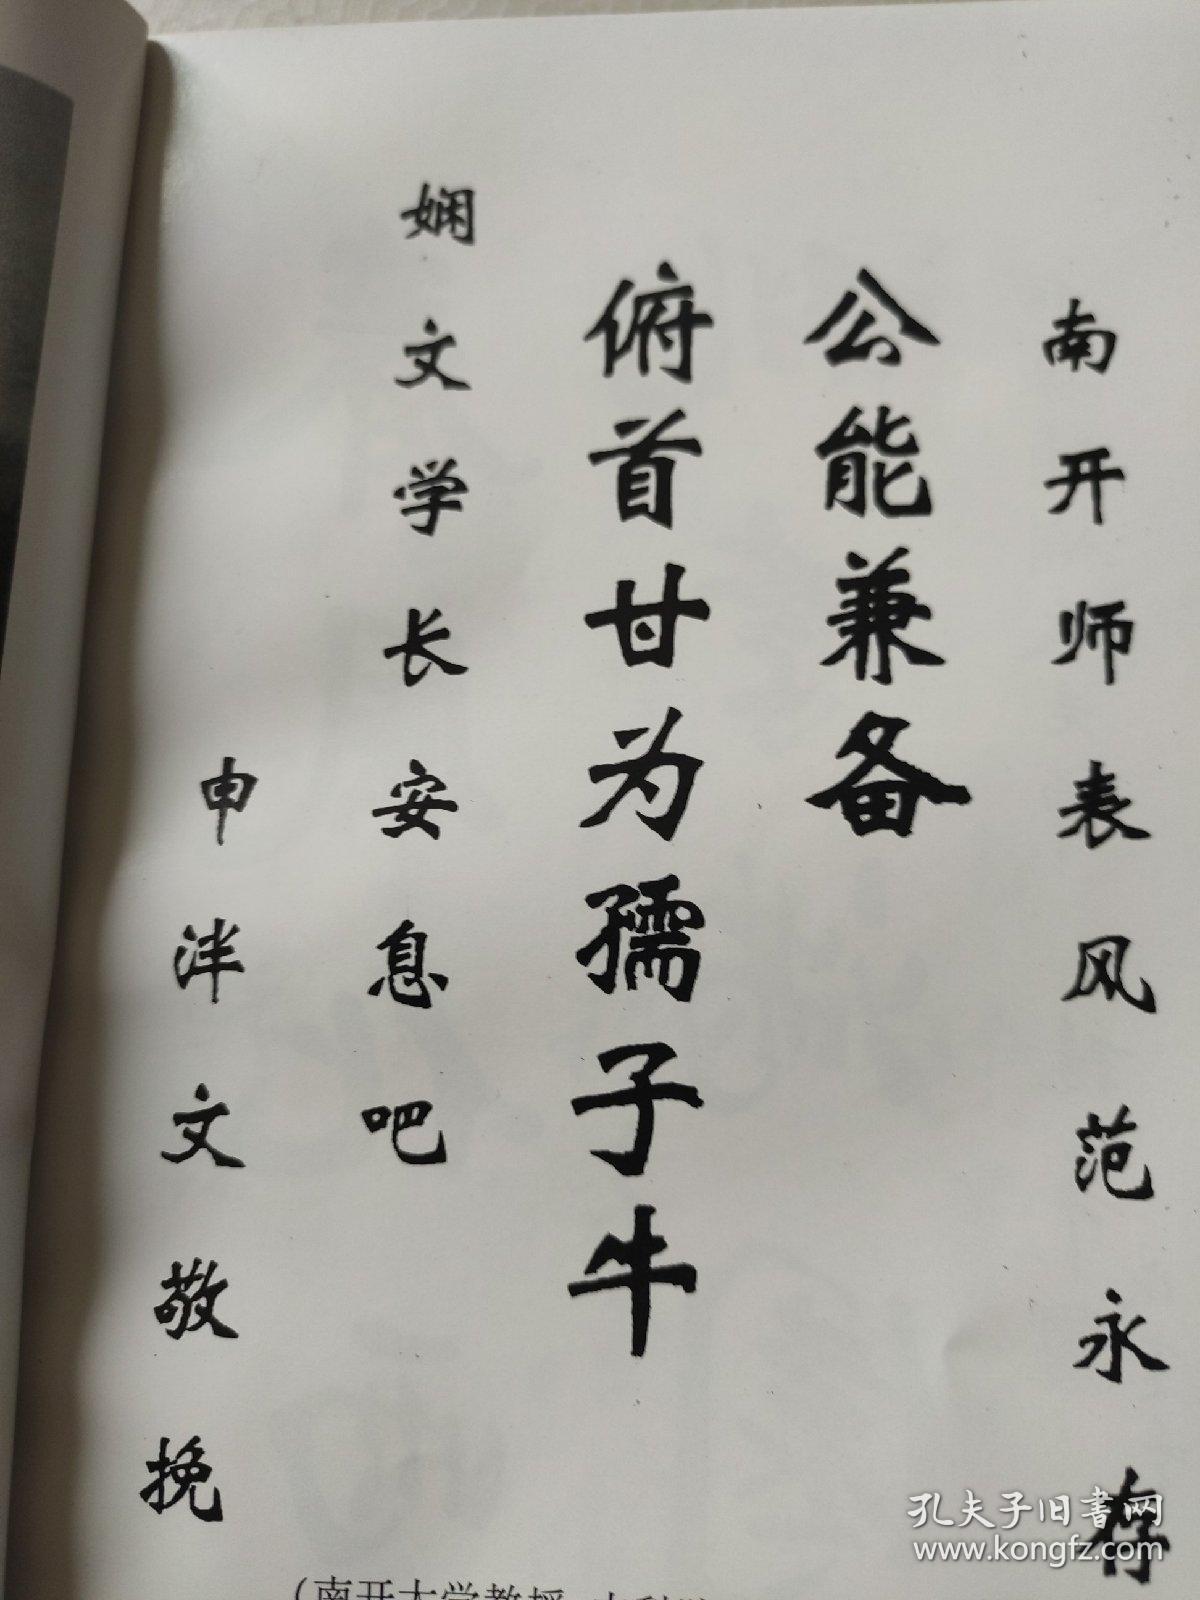 南开师表风范永存
公能兼备
俯首甘为孺子牛
娴文学长安息吧
申泮文敬挽
(南开大学教授
孔夫子旧書网
www.kongfz.com